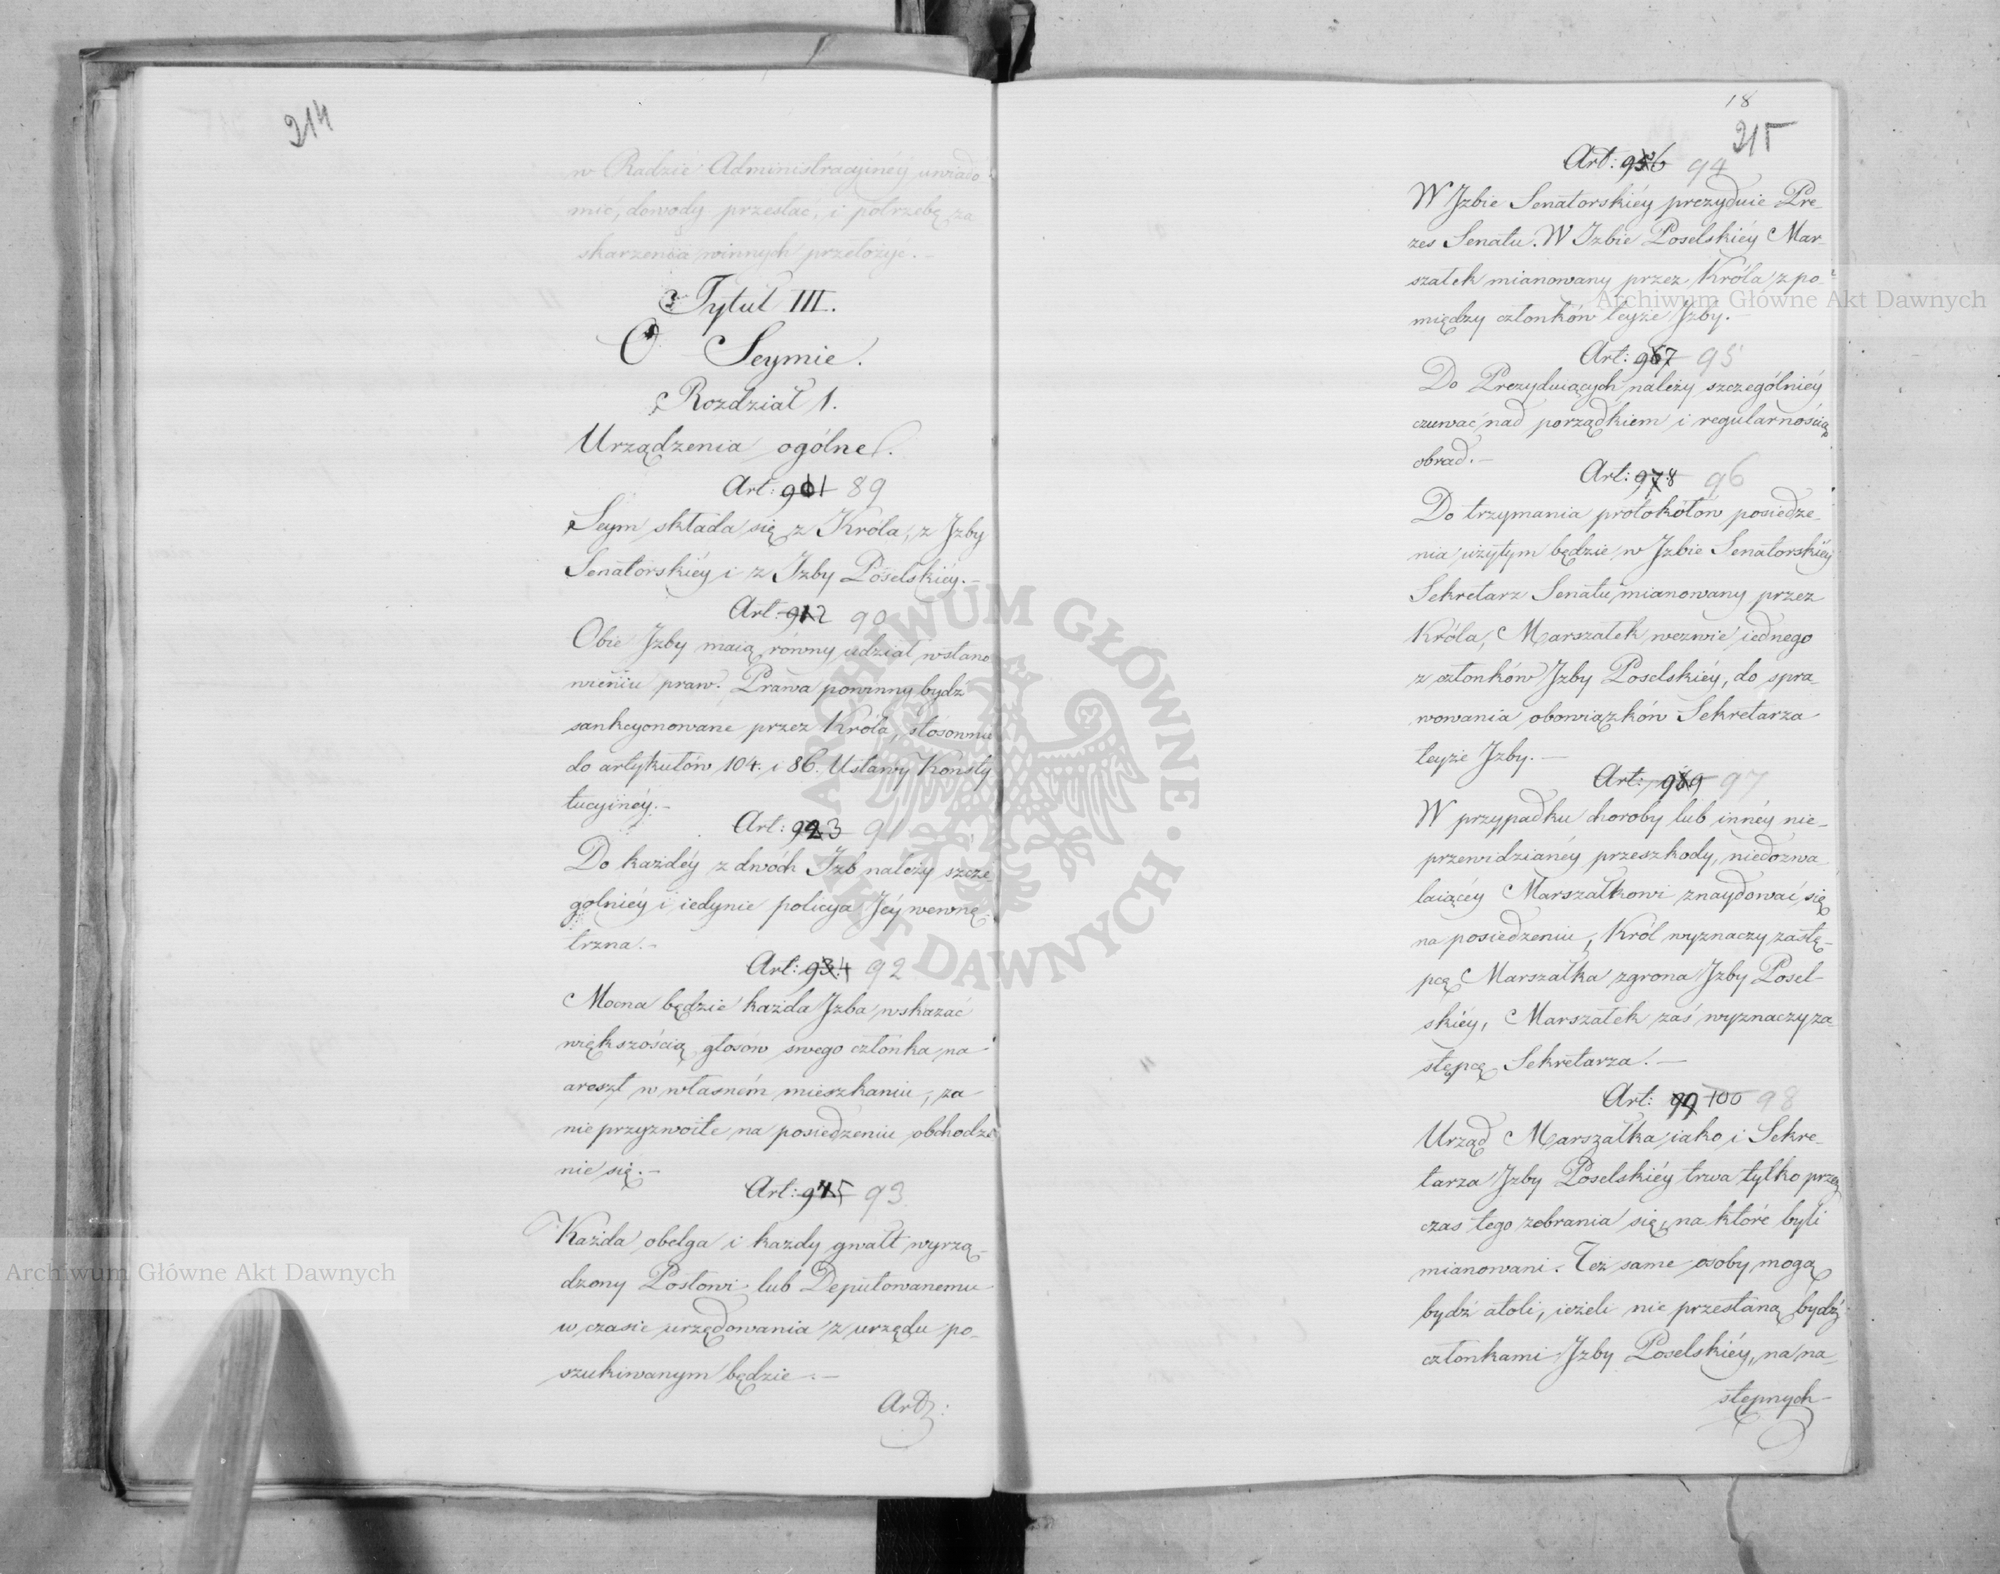 214
w Radzie Administracyinéy uwiado-
mić, dowody przesłać, i potrzebę za
skarżenia winnych przełożyć.-
Tytuł III.
O Seymie.
Rozdział 1.
Urządzenia ogólne.
Art: 901 89
Seym składa się z Króla, z Jzby
Senatorskiéy i z Jzby Poselskiéy.-
Art: 912 90
Obie Jzby maią równy udział w stano
wieniu praw. Prawa powinny bydź
sankcyonowane przez Króla, stosownie
do artykułów 104. i 86. Ustawy Konsty
tucyinéy.-
Art: 923 91
Do każdéy z dwóch Jzb należy szcze
gólniéy i iedynie policya Jéy wewnę-
trzna.-
Art: 934 92
Mocna będzie każda Jzba wskazać
większością głosów swego członka na
areszt w własném mieszkaniu, za
nieprzyzwoite na posiedzeniu obchodze
nie się.-
Art: 945 93
Każda obelga i każdy gwałt wyrzą-
dzony Posłowi lub Deputowanemu
w czasie urzędowania z urzędu po-
szukiwanym będzie.-
Art:
18
215
Art: 956 94
W Jzbie Senatorskiéy prezyduie Pre-
zes Senatu. W Jzbie Poselskiéy Mar-
szałek mianowany przez Króla z po-
między członków teyże Jzby.
Art: 967 95
Do Prezyduiących należy szczególniéy
czuwać nad porządkiem i regularnością
obrad.-
Art: 978 96
Do trzymania protokółów posiedze-
nia użytym będzie w Jzbie Senatorskiéy
Sekretarz Senatu mianowany przez
Króla, Marszałek wezwie iednego
z członków Jzby Poselskiéy, do spra-
wowania obowiązków Sekretarza
teyże Jzby.-
Art: 989 97
W przypadku choroby lub innéy nie-
przewidzianéy przeszkody, niedozwa
laiącéy Marszałkowi znaydować się
na posiedzeniu, Król wyznaczy zastę-
pcę Marszałka z grona Jzby Posel-
skiéy, Marszałek zaś wyznaczy za-
stępcę Sekretarza.-
Art: 99 100 98
Urząd Marszałka iako i Sekre-
tarza Jzby Poselskiéy trwa tylko przez
czas tego zebrania się, na które byli
mianowani. Też same osoby mogą
bydź atoli, ieżeli nie przestaną bydź
członkami Jzby Poselskiéy, na na-
stępnych
Archiwum Główne Akt Dawnych
Archiwum Główne Akt Dawnych
ARCHIWUM GŁÓWNE · AKT DAWNYCH ·